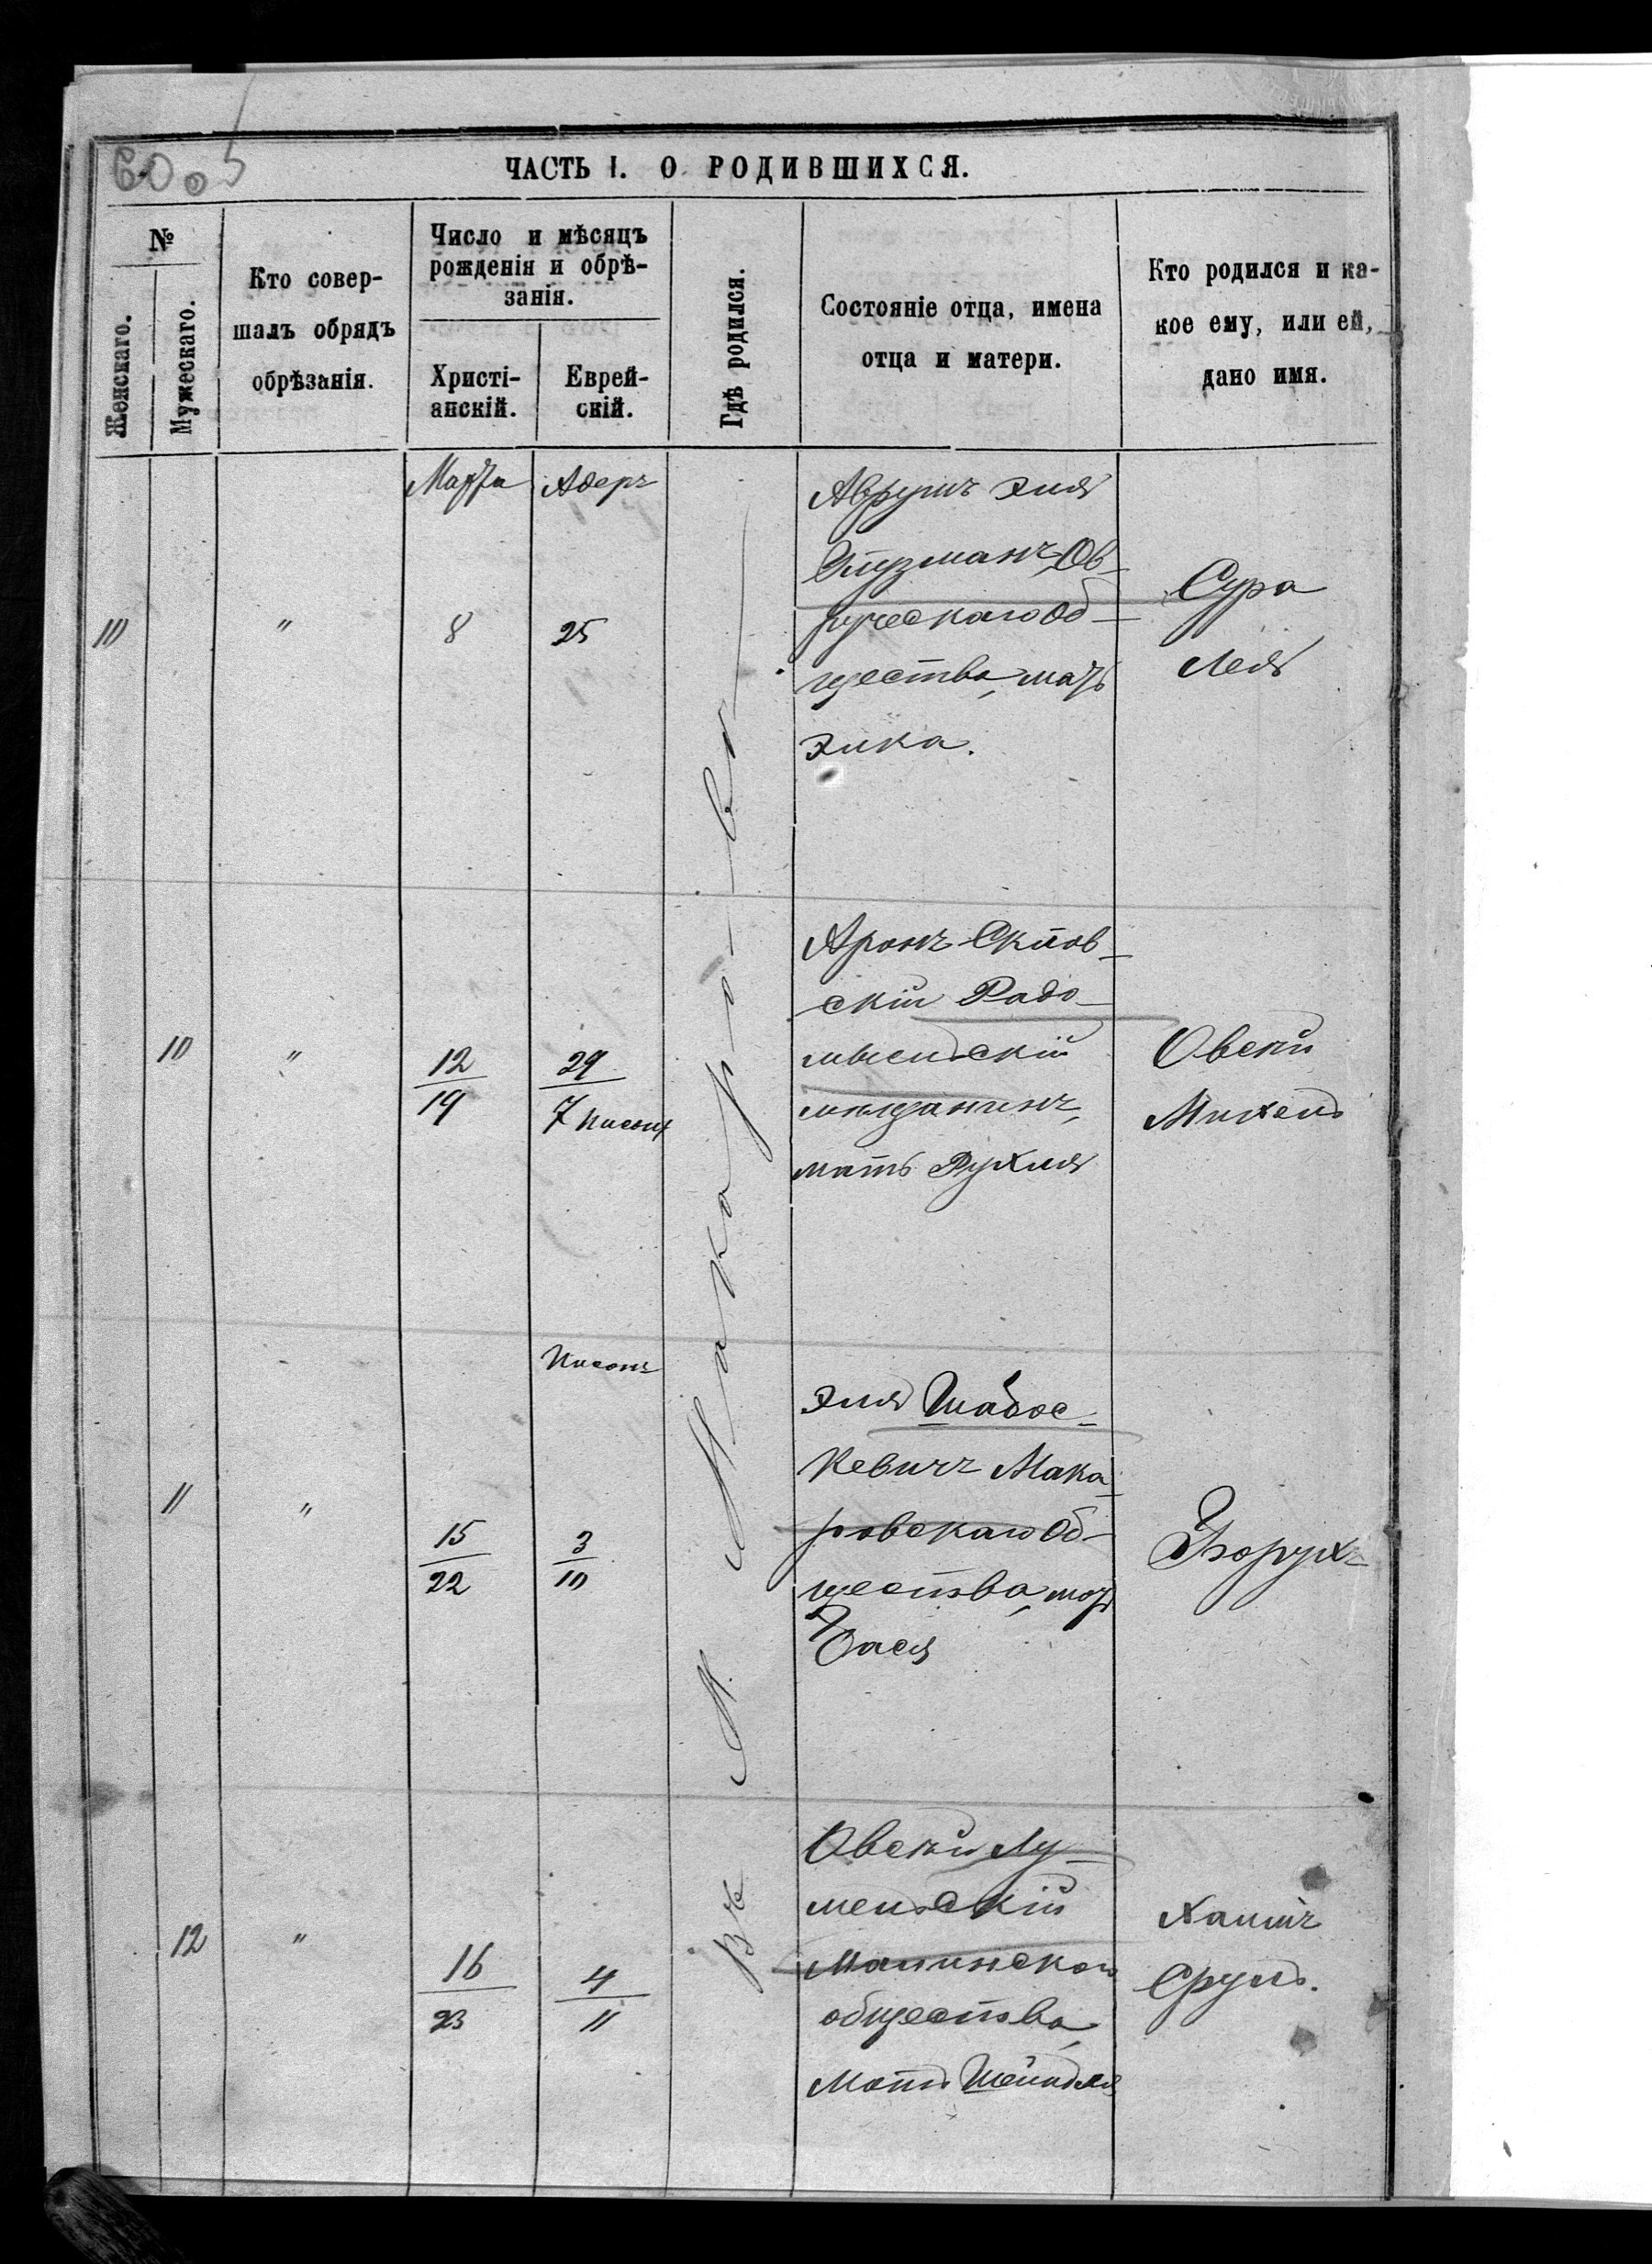 ЧАСТЬ I. О РОДИВШИХСЯ.
№
Женскаго.
Мужескаго.
Кто совер-
шалъ обрядъ
обрѣзанія.
Число и мѣсяцъ
рожденія и обрѣ-
занія.
Христі-
анскій.
Еврей-
скій.
Гдѣ родился.
Состояніе отца, имена
отца и матери.
Кто родился и ка-
кое ему, или ей,
дано имя.
Марта
Адеръ
Въ М. Макаровѣ
"
8
25
Аврумъ Эля
Глузманъ Ов-
ручскаго об-
щества, мать
Элка.
Сура
Лея
10
"
12
19
29
7 Нисонъ
Аронъ
скій Радо-
мысльскій
мѣщанинъ,
мать Рухля
Овсей
Михель
Нисонъ
11
"
15
22
3
10
Эля Шабос-
кевичъ Мака-
ровскаго об-
щества, мать
Бася
Борухъ
12
"
16
23
4
11
Овсей Лу-
менскій
Малинскаго
общества,
мать Шейндля
Хаимъ
Сруль.